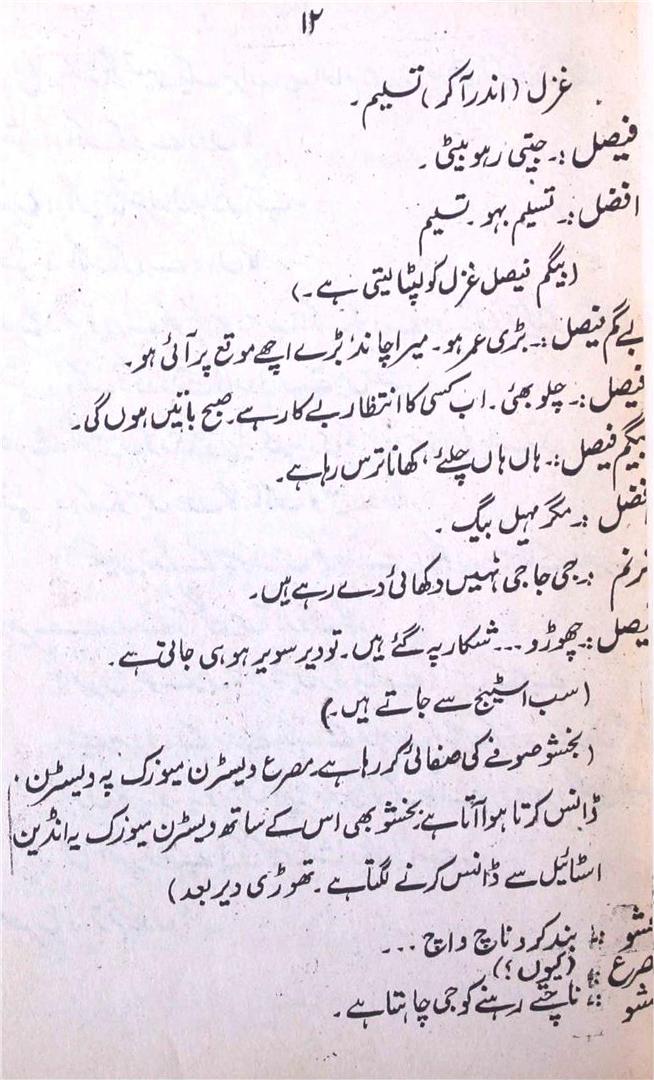 ۱۲
غزل (اندر آ کر) تسلیم۔
فیصل :۔ جیتی رہو بیٹی۔
افضل :۔ تسلیم بہو۔ تسلیم
(بیگم فیصل غزل کو لپٹا لیتی ہے۔)
بے گم فیصل :۔ بڑی عمر ہو۔ میرا چاند بڑے اچھے موقع پر آئی ہو۔
فیصل :۔ چلو بھئی۔ اب کسی کا انتظار بے کار ہے۔ صبح باتیں ہوں گی۔
بیگم فیصل :۔ ہاں ہاں چلئے، کھانا ترس رہا ہے۔
افضل :۔ مگر مہل بیگ۔
ترنم :۔ جی جا جی نہیں دکھائی دے رہے ہیں۔
فیصل :۔ چھوڑو ... شکار پہ گئے ہیں۔ تو دیر سویر ہو ہی جاتی ہے۔
(سب اسٹیج سے جاتے ہیں۔)
(بخشو صوفے کی صفائی کر رہا ہے۔ مصرع ویسٹرن میوزک پہ ویسٹرن
ڈانس کرتا ہوا آتا ہے بخشو بھی اس کے ساتھ ویسٹرن میوزک پہ انڈین
اسٹائیل سے ڈانس کرنے لگتا ہے۔ تھوڑی دیر بعد)
بخشو :۔ بند کرو ناچ واچ ...
مصرع :۔ (کیوں؟)
بخشو :۔ ناچتے رہنے کو جی چاہتا ہے۔